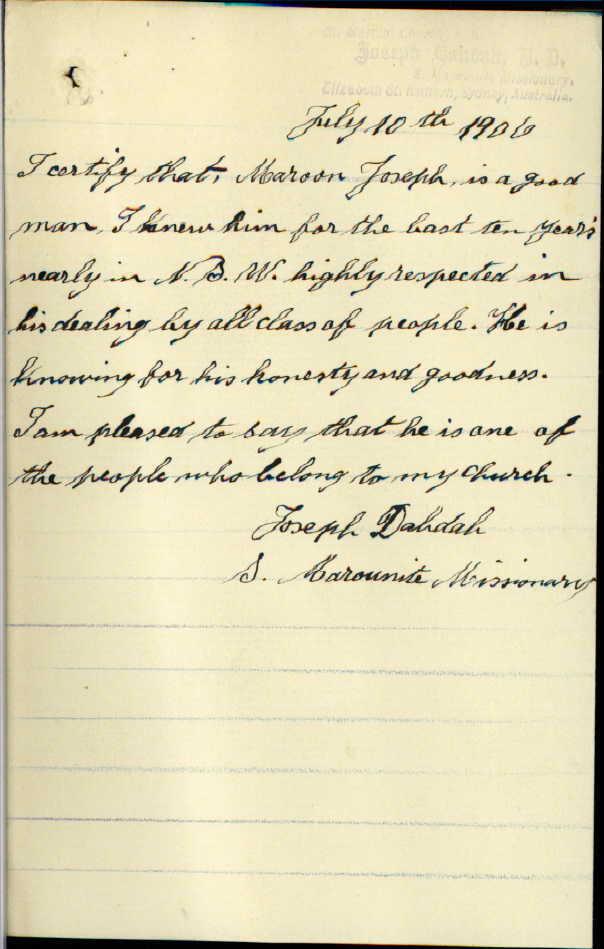 Joseph Dahdah, U. D.
S. Maronite Missionary,
Elizabeth St. Redfern, Sydney, Australia.
July 10th 1906
I certify that, Maroon Joseph, is a good
man, I knew him for the last ten year's
nearly in N. S. W. highly respected in
his dealing by all class of people. He is
knowing for his honesty and goodness.
I am pleased to say that he is one of
the people who belong to my Church.
Joseph Dahdah
S. Marounite Missionary